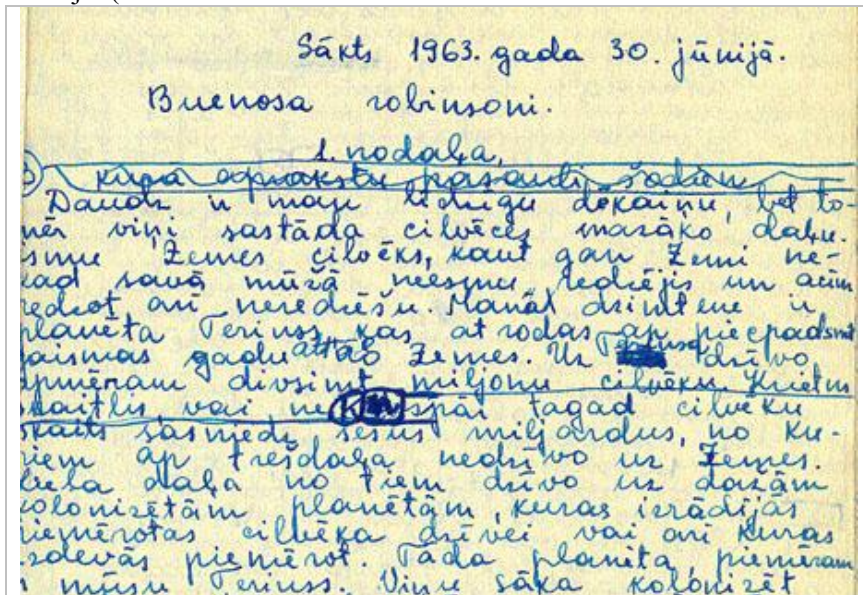 Sākts 1963. gada 30. jūnijā.
Buenosa robinsoni.
1. nodaļa,
kurā aprakstu pasauli šodien
Daudz ir maņ līdzīgu dēkaiņu, bet to-
mēr viņi sastāda cilvēces mazāko daļu.
esmu Zemes cilvēks, kaut gan Zemi ne-
kad savā mūžā neesmu redzējis un acīm
redzot arī neredzēšu. Mana dzimtene ir
planēta Teriuss, kas atrodas ap piecpadsmit
gaismas gadu attālo Zemes. Uz Teriusa dzīvo
apmēram divsimt miljonu cilvēku. Krietns
skaitlis, vai ne tagad cilvēku
skaits sasniedz sešus miljardus, no ku-
riem ap trešdaļa nedzīvo uz Zemes.
Liela daļa no tiem dzīvo uz dažām
kolonizētām planētām, kuras izrādījās
piemērotas cilvēka dzīvei vai arī kuras
izdevās piemērot. Tāda planēta, piemēram
ir mūsu Teriuss. Viņu sāka kolonizēt